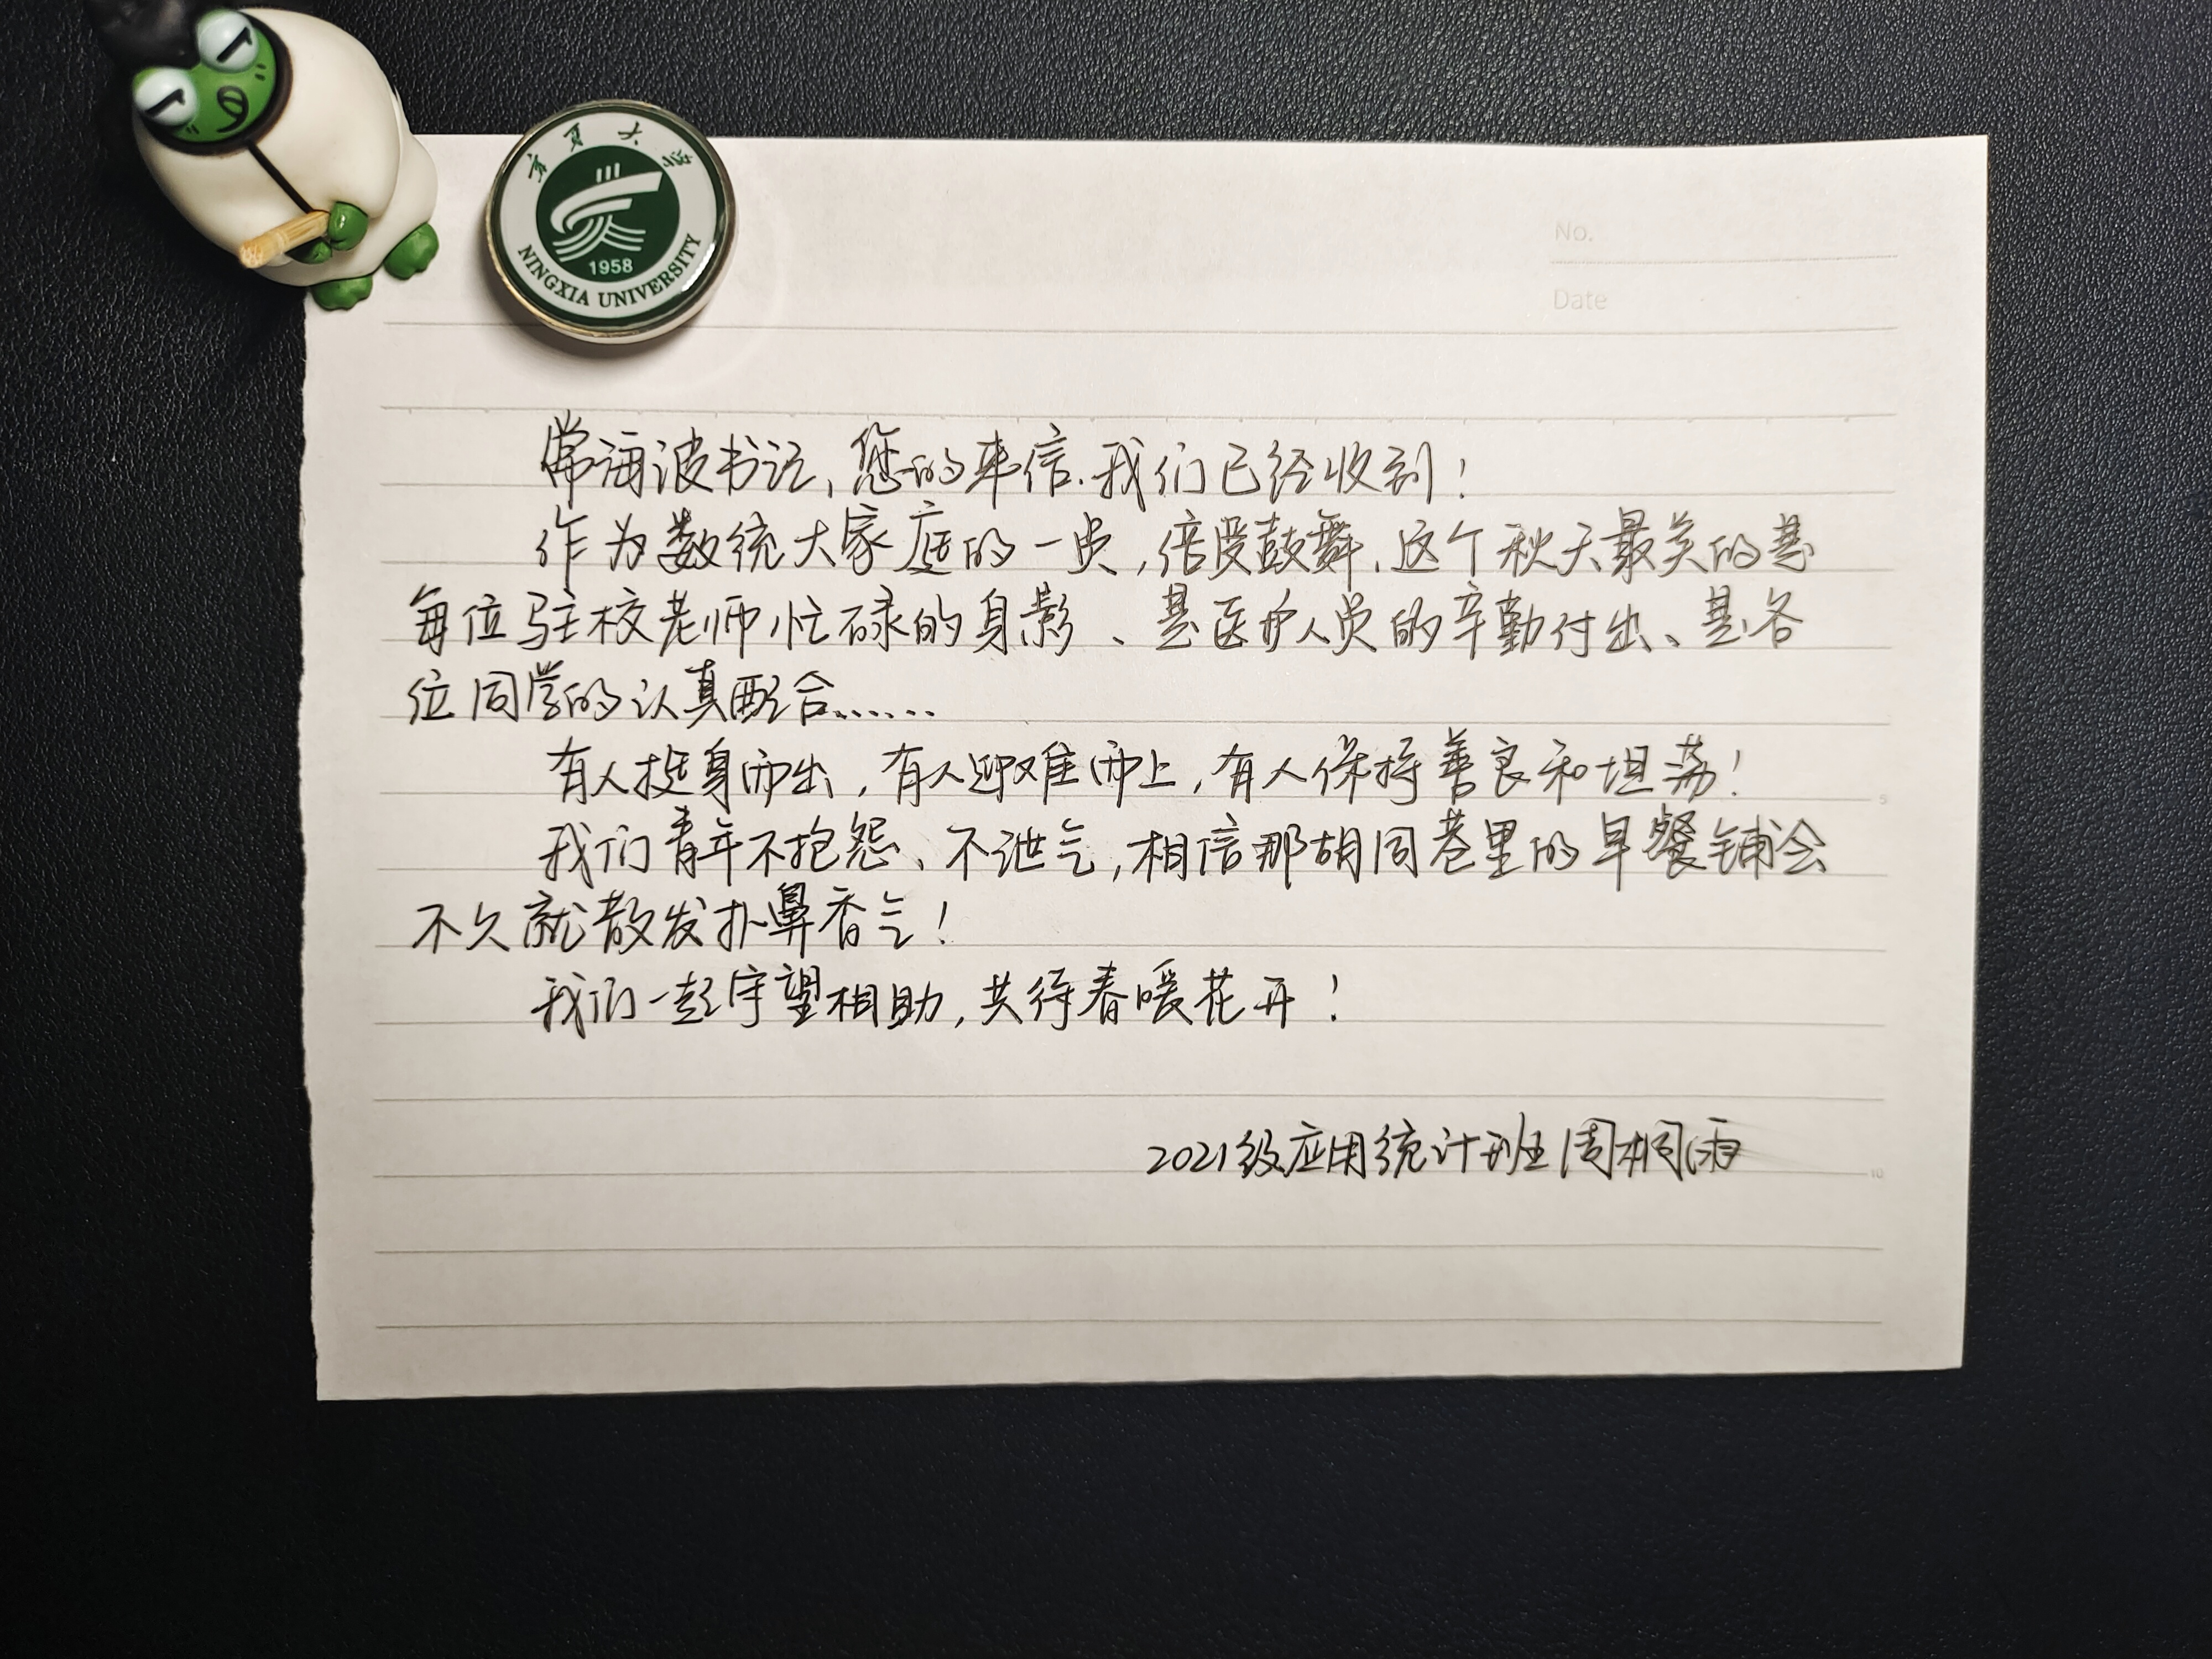 宁夏大学
1958
NINGXIA UNIVERSITY
No.
Date
常海波书记,您的来信.我们已经收到!
作为数统大家庭的一员,倍受鼓舞.这个秋天最美的是
每位驻校老师忙碌的身影、是医护人员的辛勤付出、是各
位同学的认真配合......
有人挺身而出,有人迎难而上,有人保持善良和坦荡!
5
我们青年不抱怨、不泄气,相信那胡同巷里的早餐铺会
不久就散发扑鼻香气!
我们一起守望相助,共待春暖花开!
2021级应用统计班周桐雨
10